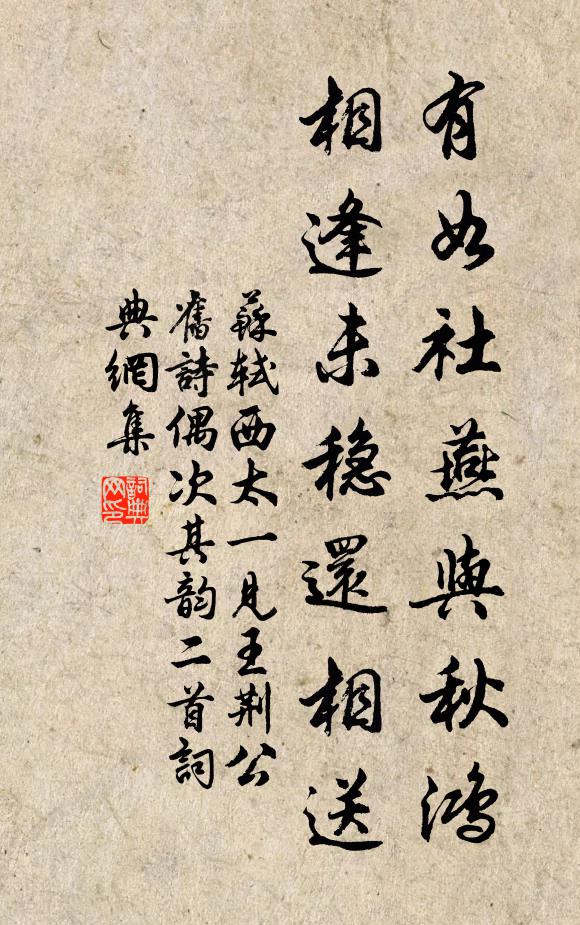 有如社燕與秋鴻
相逢未穩還相送
蘇軾西太一見王荊公
舊詩偶次其韵二首詞
典網集
詞典
网印